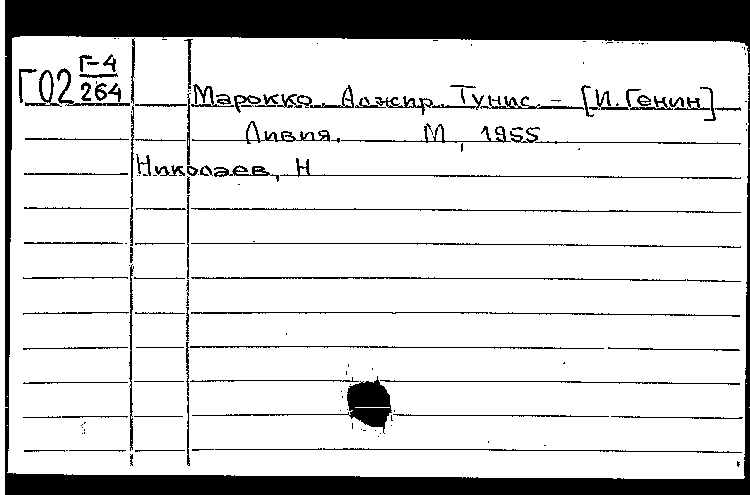 Г02 Г-4
264
Марокко. Алжир. Тунис – [И. Генин]
Ливия. М, 1955
Николаев, Н